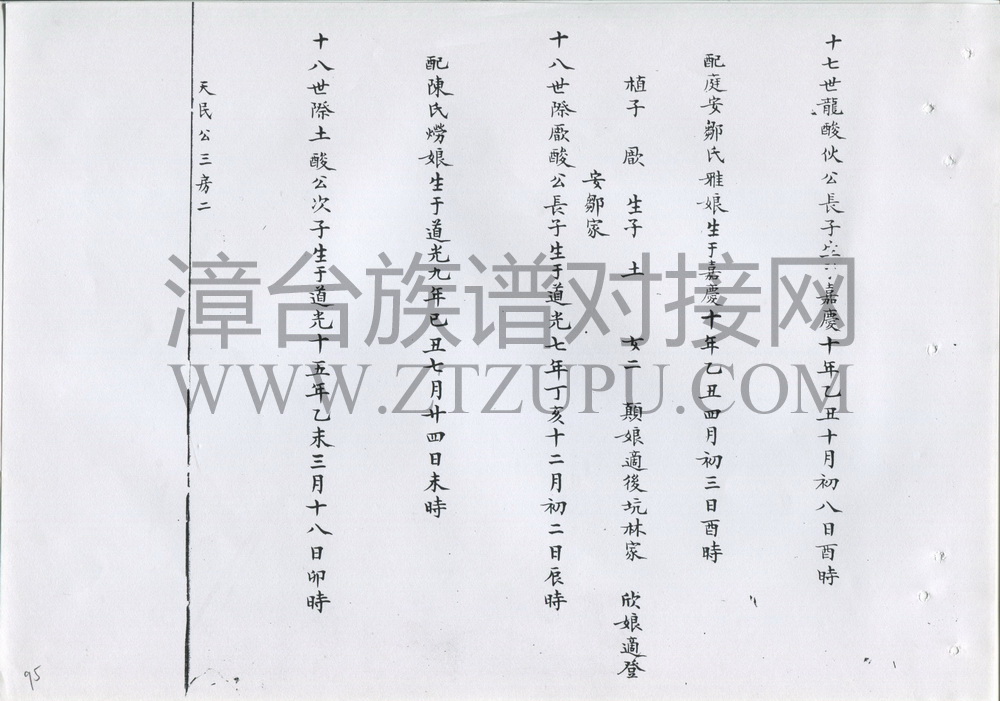 十七世龍酸伙公長子生于嘉慶十年乙丑十月初八日酉時
配庭安鄒氏雅娘生于嘉慶十年乙丑四月初三日酉時
植子 厫 生子 土 女二 顛娘適後坑林家 欣娘適登
安鄒家
十八世際厫酸公長子生于道光七年丁亥十二月初二日辰時
配陳氏燐娘生于道光九年已丑七月廿四日未時
十八世際土酸公次子生于道光十五年乙未三月十八日卯時
天民公三房二
95
漳台族谱对接网
WWW.ZTZUPU.COM